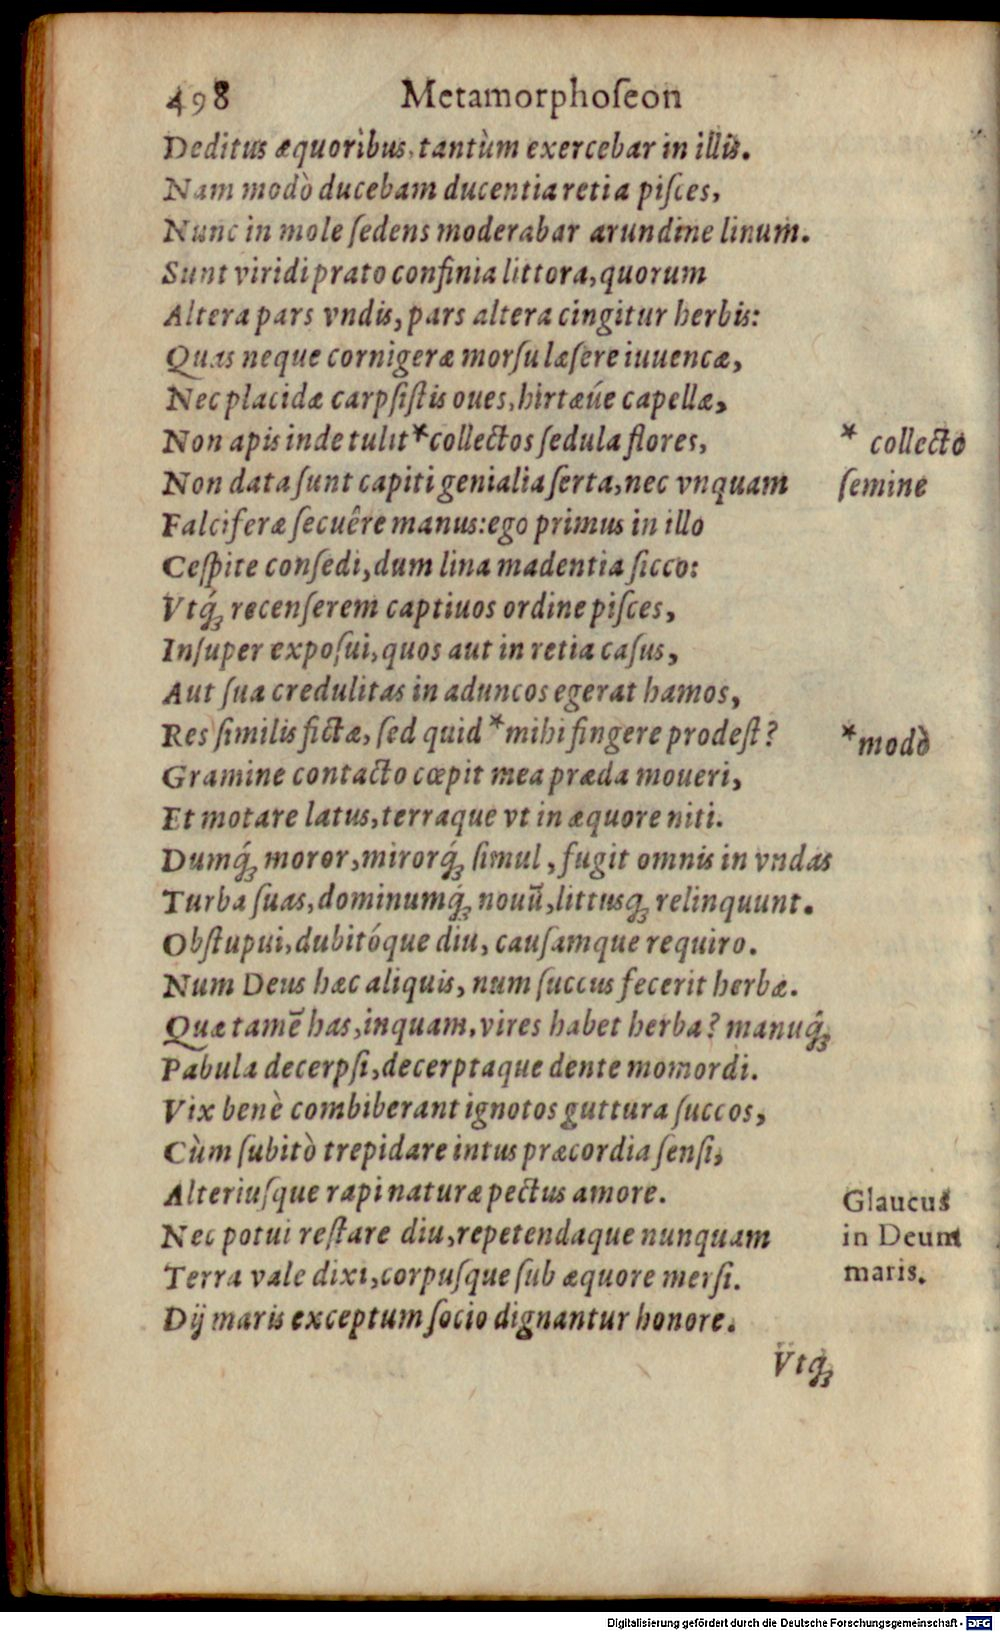 498 Metamorphoſeon
Deditus æquoribus, tantùm exercebar in illis.
Nam modò ducebam ducentia retia piſces,
Nunc in mole ſedens moderabar arundine linum.
Sunt viridi prato confinia littora, quorum
Altera pars vndis, pars altera cingitur herbis:
Quas neque cornigeræ morſu læſere iuuencæ,
Nec placidæ carpſiſtis oues, hirtæúe capellæ,
Non apis inde tulit *collectos ſedula flores,
* collecto
Non data ſunt capiti genialia ſerta, nec vnquam
ſemine
Falciferæ ſecuêre manus: ego primus in illo
Ceſpite conſedi, dum lina madentia ſicco:
Vtq́ꝫ recenſerem captiuos ordine piſces,
Inſuper expoſui, quos aut in retia caſus,
Aut ſua credulitas in aduncos egerat hamos,
Res ſimilis fictæ, ſed quid *mihi fingere prodeſt?
*modò
Gramine contacto cœpit mea præda moueri,
Et motare latus, terraque vt in æquore niti.
Dumq́ꝫ moror, mirorq́ꝫ ſimul, fugit omnis in vndas
Turba ſuas, dominumq́ꝫ nouū, littusqꝫ relinquunt.
Obſtupui, dubitóque diu, cauſamque requiro.
Num Deus hæc aliquis, num ſuccus fecerit herbæ.
Quæ tamē has, inquam, vires habet herba? manuq́ꝫ
Pabula decerpſi, decerptaque dente momordi.
Vix benè combiberant ignotos guttura ſuccos,
Cùm ſubitò trepidare intus præcordia ſenſi,
Alteriuſque rapi naturæ pectus amore.
Glaucus
Nec potui reſtare diu, repetendaque nunquam
in Deum
Terra vale dixi, corpuſque ſub æquore merſi.
maris.
Dij maris exceptum ſocio dignantur honore.
Vtq́ꝫ
Digitalisierung gefördert durch die Deutsche Forschungsgemeinschaft - DFG